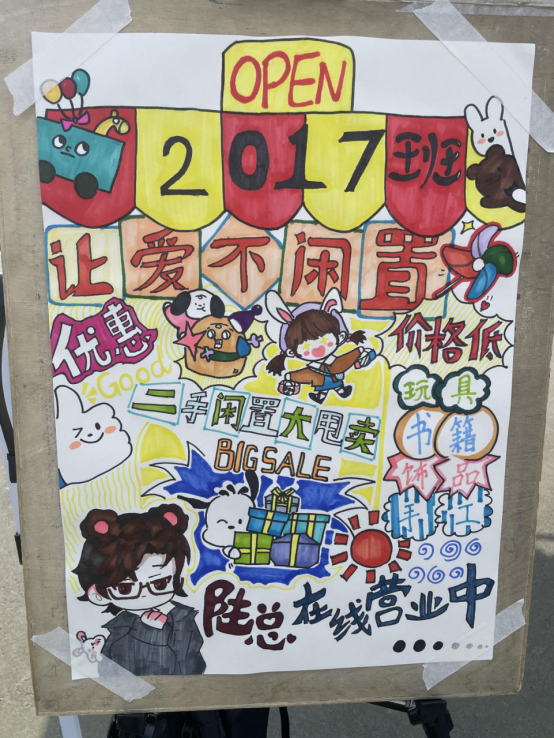 OPEN
2017班
让爱不闲置
优惠
价格低
Good
二手闲置大甩卖
BIG SALE
玩具
书籍
饰品
手工
陆总在线营业中